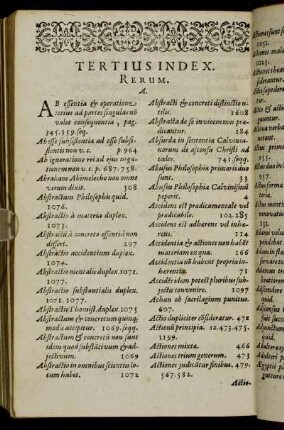 TERTIUS INDEX.
RERUM.
A.
AB essentia & operatione
totius ad partes singulas nõ
valet consequentia, pag.
345.359.seqq.
Ab esse subsistentia ad esse subsi-
stentis non v.c. p.964
Ab ignoratione rei ad ejus nega-
tionem non v.c. p. 687.758.
Abraham Abimelecho non omne
verum dixit. 508
Abstractum Philosophis quid.
1076.
Abstractio à materia duplex.
1073.
Abstractũ à concreto essentiâ non
differt. 297
Abstractio accidentium duplex.
1074.
Abstractio mentalis duplex. 1071.
1077.
Abstractio substantialis duplex.
1071. 1077.
Abstractio Thomist. duplex. 1075
Abstractum & concretum quinq;
modis accipitur. 1069. seqq.
Abstractum & concretũ non sunt
idem quod substãtivum & ad-
jectivum. 1069
Abstractio in omnibus scientiis lo-
cum habet. 1072
Abstracti & concreti distinctio u-
tilis. 1608
Abstracta de se invicem non præ-
dicantur. 184
Absurda in sententia Calvinia-
norum de ascensu Christi in
cœlos. 741. seqq.
Abusus Philosophiæ primarii duo
35
Abusus Philosophiæ Calvinis fuit
peperit.
Accidens est prædicamentale vel
prædicabile. 102.285
Accidens est adhærens vel inhæ-
rens. 114
Accidentia & actiones non habẽt
materiam ex qua. 166
Accidentia nõ habent propria in-
hærentia. 71
Accidẽs idem potest pluribus sub-
jectis convenire. 1097
Achan ob sacrilegium punitus.
607.
Actio dupliciter cõsideratur. 472
Actionũ principia. 22.473.475.
1199.
Actiones mixtæ. 466
Actiones trium generum. 473
Actiones judicãtur finibus. 479.
567.582.
Actio-